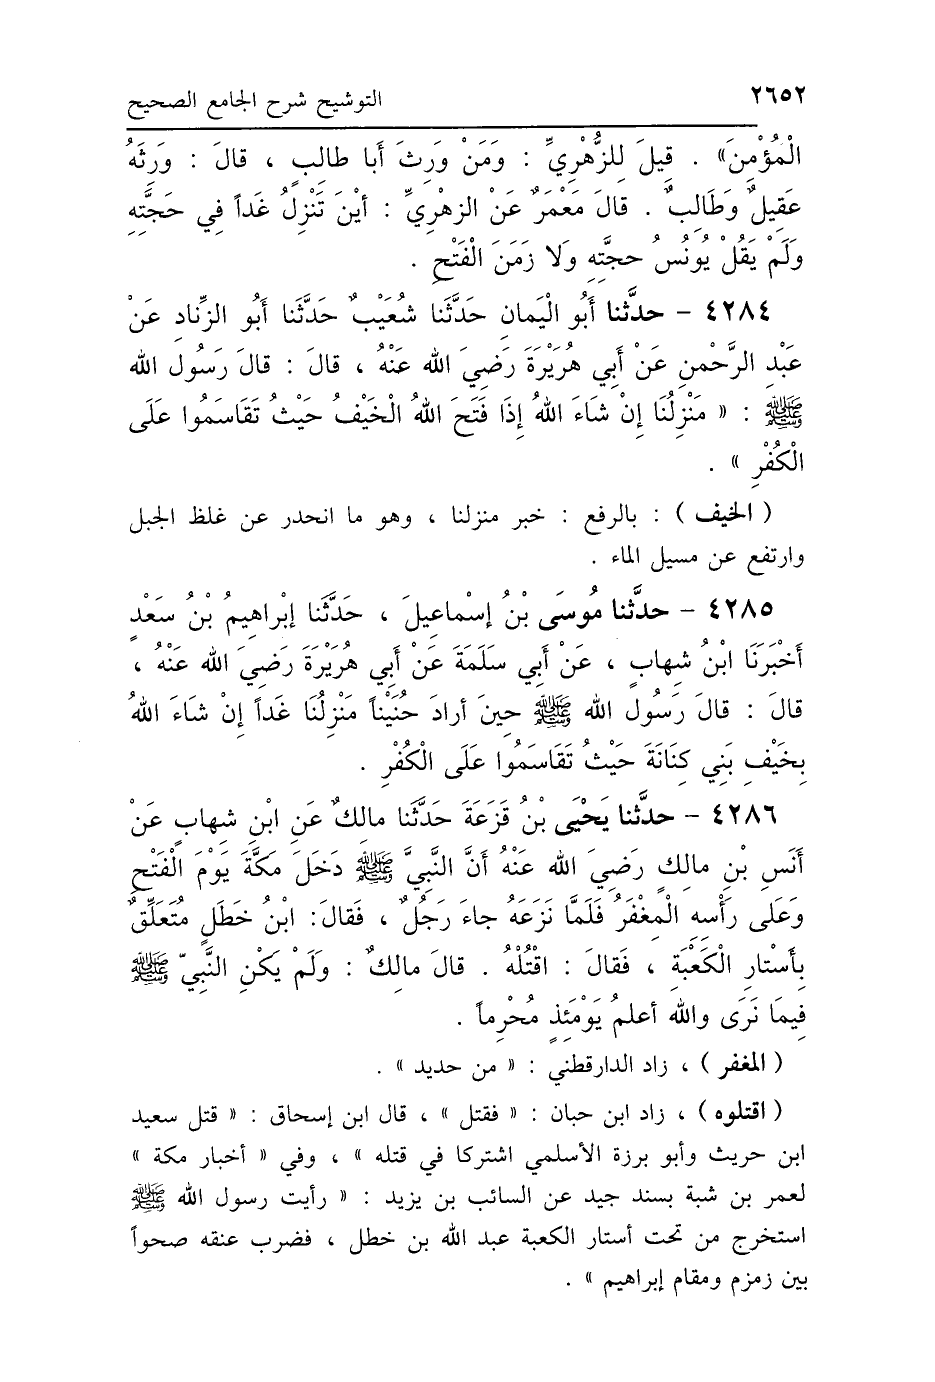 ٢٦٥٢ التوشيح شرح الجامع الصحيح
الْمُؤْمِنَ» . قِيلَ لِلزُّهْرِيِّ : وَمَنْ وَرِثَ أَبا طالِبٍ ، قالَ : وَرِثَهُ
عَقِيلٌ وَطَالِبٌ . قالَ مَعْمَرٌ عَنْ الزهْرِيِّ : أَيْنَ تَنْزِلُ غَداً فِي حَجَّتِهِ
وَلَمْ يَقُلْ يُونُسُ حجتَّهِ وَلَا زَمَنَ الْفَتْحِ .
٤٢٨٤ - حدَّثنا أَبُو الْيَمانِ حَدَّثَنا شُعَيْبٌ حَدَّثَنا أَبُو الزِّنادِ عَنْ
عَبْدِ الرَّحْمنِ عَنْ أَبِي هُرَيْرَةَ رَضِيَ الله عَنْهُ ، قالَ : قالَ رَسُول الله
ﷺ : « مَنْزِلُنَا إِنْ شَاءَ اللهُ إِذَا فَتَحَ اللهُ الْخَيْفُ حَيْثُ تَقَاسَمُوا عَلَى
الْكُفْرِ » .
( الخيف ) : بالرفع : خبر منزلنا ، وهو ما انحدر عن غلظ الجبل
وارتفع عن مسيل الماء .
٤٢٨٥ - حدَّثنا مُوسَى بْنُ إِسْماعِيلَ ، حَدَّثَنا إِبْراهِيمُ بْنُ سَعْدٍ
أَخْبَرَنَا ابْنُ شهابٍ ، عَنْ أَبِي سَلَمَةَ عَنْ أَبِي هُرَيْرَةَ رَضِيَ الله عَنْهُ ،
قالَ : قالَ رَسُول الله ﷺ حِينَ أَرادَ حُنَيْناً مَنْزِلُنَا غَداً إِنْ شَاءَ اللهُ
بِخَيْفِ بَنِي كِنَانَةَ حَيْثُ تَقَاسَمُوا عَلَى الْكُفْرِ .
٤٢٨٦ - حدَّثنا يَحْيَى بْنُ قَزَعَةَ حَدَّثَنا مالِكٌ عَنِ ابْنِ شهابٍ عَنْ
أَنَسِ بْنِ مالِكٍ رَضِيَ الله عَنْهُ أَنَّ النَّبِيَّ ﷺ دَخَلَ مَكَّةَ يَوْمَ الْفَتْحِ
وَعَلَى رَأْسِهِ الْمِغْفَرُ فَلَمَّا نَزَعَهُ جاءَ رَجُلٌ ، فَقالَ: ابْنُ خَطَلٍ مُتَعَلِّقٌ
بِأَسْتارِ الْكَعْبَةِ ، فَقالَ : اقْتُلْهُ . قالَ مالِكٌ : وَلَمْ يَكُنِ النَّبِيّ ﷺ
فِيمَا نَرَى والله أعلمُ يَوْمَئِذٍ مُحْرِماً .
( المغفر ) ، زاد الدارقطني : « من حديد » .
( اقتلوه ) ، زاد ابن حبان : « فقتل » ، قال ابن إسحاق : « قتل سعيد
ابن حريث وأبو برزة الأسلمي اشتركا في قتله » ، وفي « أخبار مكة »
لعمر بن شبة بسند جيد عن السائب بن يزيد : « رأيت رسول الله ﷺ
استخرج من تحت أستار الكعبة عبد الله بن خطل ، فضرب عنقه صحواً
بين زمزم ومقام إبراهيم » .